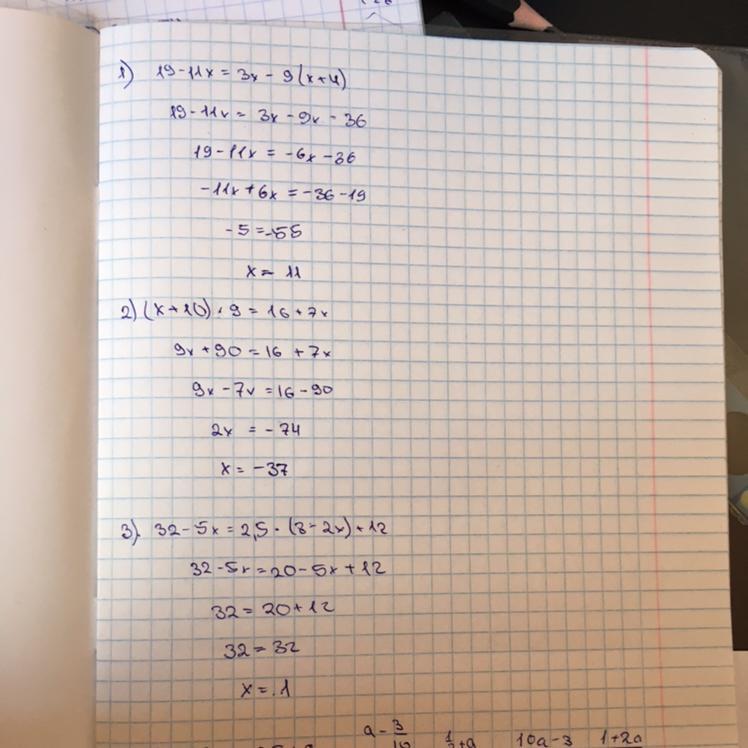 1) 19-11x = 3x - 9(x+4)
19-11x = 3x - 9x - 36
19-11x = -6x - 36
-11x+6x = -36-19
-5 = -55
x = 11
2) (x+10) · 9 = 16 + 7x
9x + 90 = 16 + 7x
9x - 7x = 16 - 90
2x = -74
x = -37
3) 32 - 5x = 2,5 · (8 - 2x) + 12
32-5x = 20 - 5x + 12
32 = 20+12
32 = 32
x = 1
a - 3/10 10a-3 1+2a